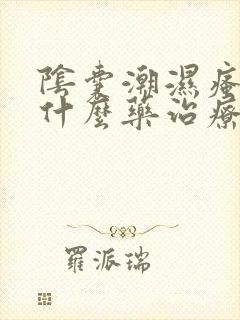 陰囊潮濕瘙
什麼藥治療
羅派瑞